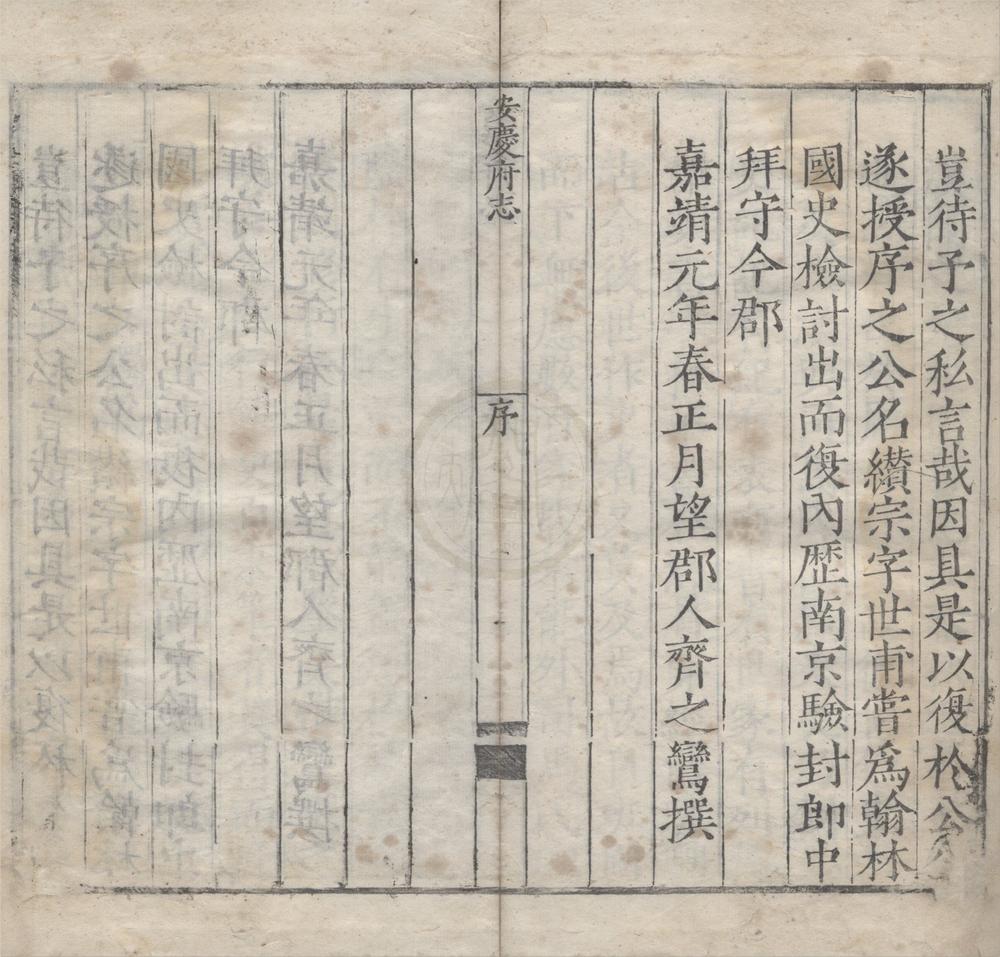 豈待予之私言哉因具是以復於公公
遂授序之公名纘宗字世甫嘗爲翰林
國史檢討出而復內歷南京驗封郎中
拜守今郡
嘉靖元年春正月望郡人齊之鸞撰
安慶府志
序